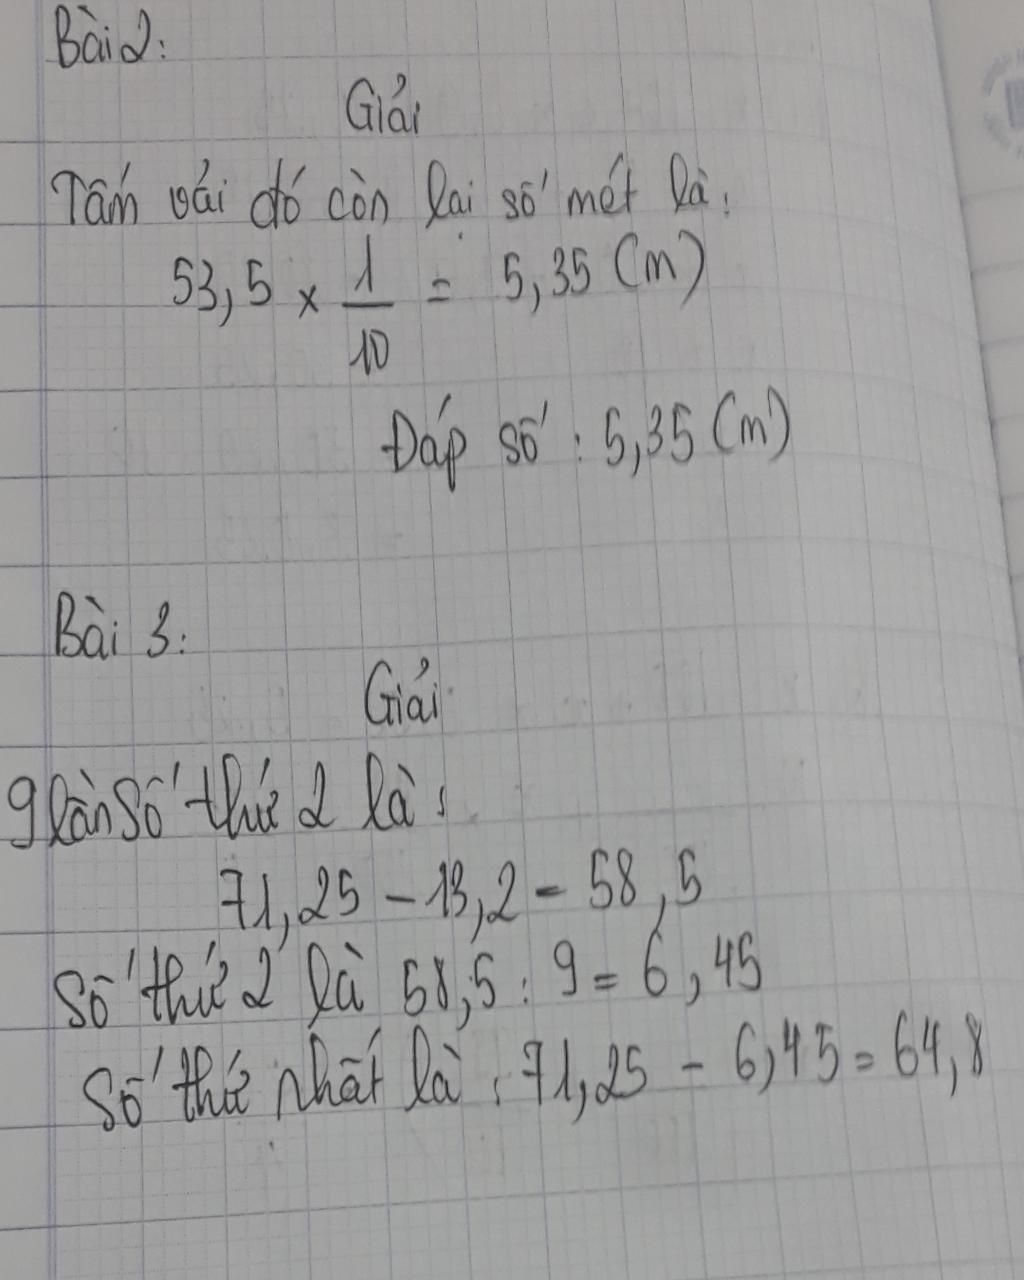 Bài 2:
Giải
Tấm vải đó còn lại số mét là:
53,5 × 1/10 = 5,35 (m)
Đáp số : 5,35 (m)
Bài 3:
Giải
9 lần số thứ 2 là :
71,25 - 13,2 = 58,5
Số thứ 2 là 58,5 : 9 = 6,45
Số thứ nhất là : 71,25 - 6,45 = 64,8